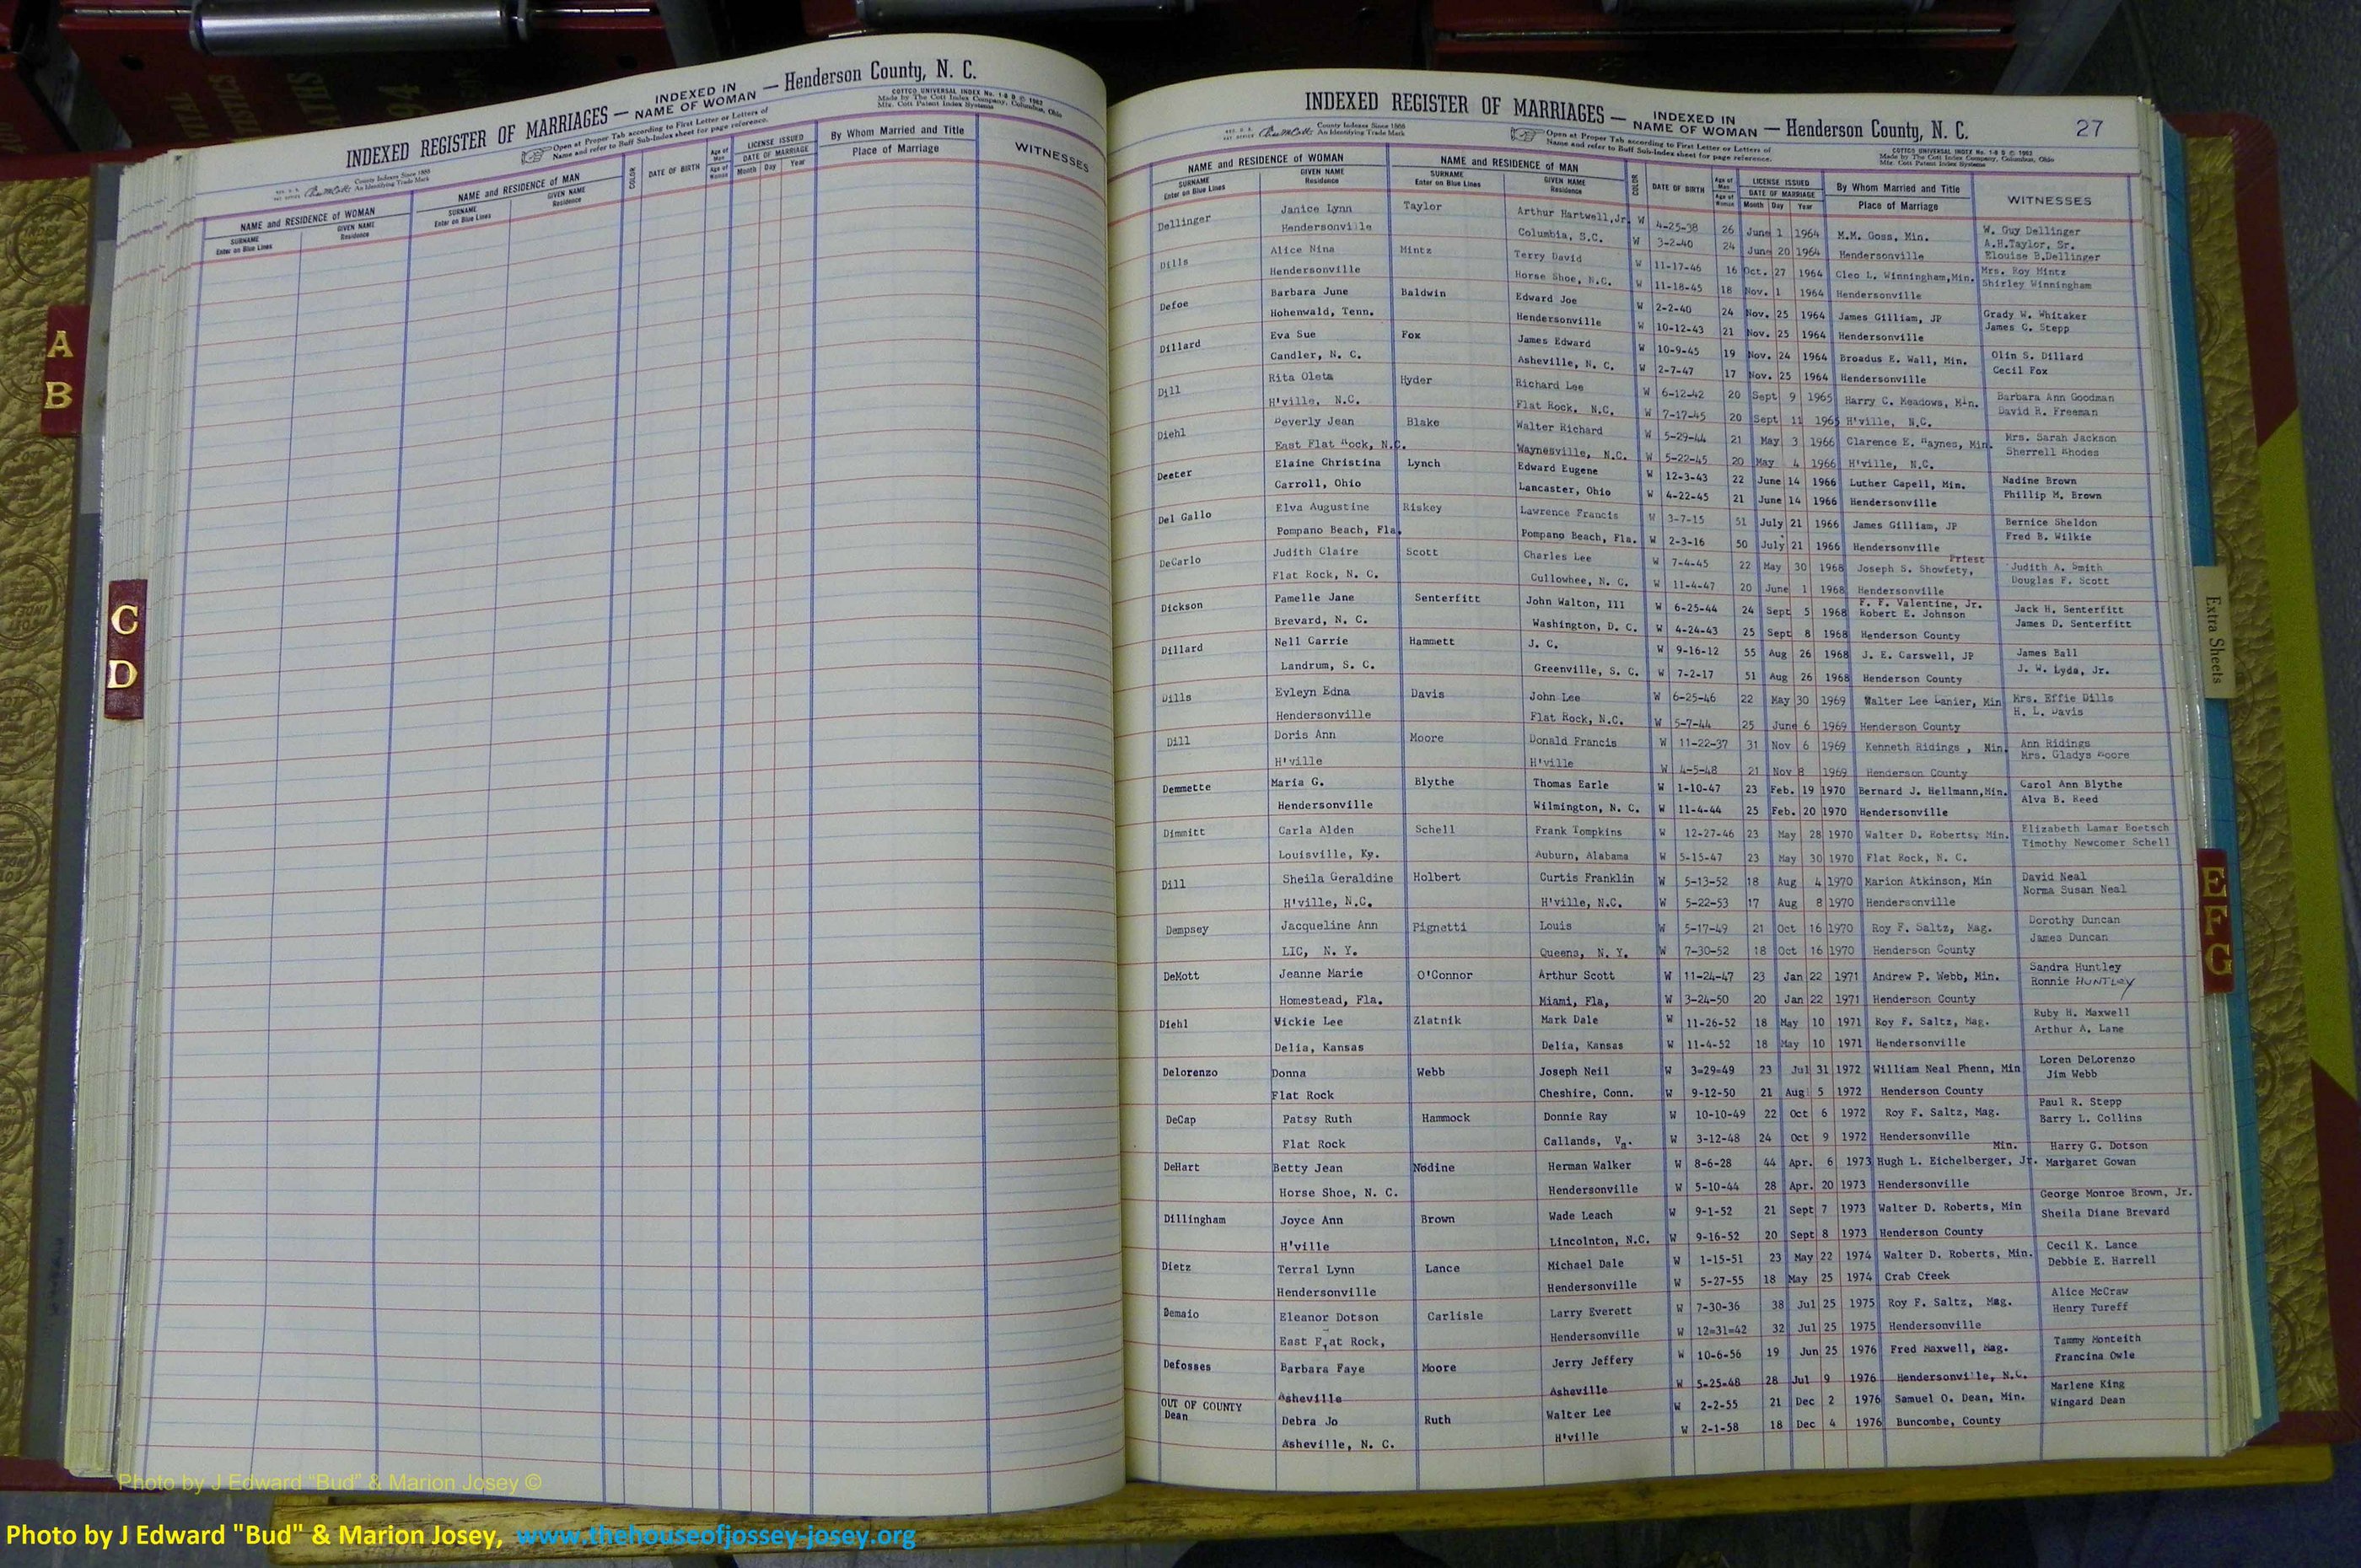 INDEXED REGISTER OF MARRIAGES — INDEXED IN NAME OF WOMAN — Henderson County, N. C.
County Indexes Since 1888
An Identifying Trade Mark
Open at Proper Tab according to First Letter or Letters of
Name and refer to Buff Sub-Index sheet for page reference.
COTTCO UNIVERSAL INDEX No. 1-8 D © 1962
Made by The Cott Index Company, Columbus, Ohio
Mfg. Cott Patent Index Systems
NAME and RESIDENCE OF WOMAN NAME and RESIDENCE OF MAN COLOR DATE OF BIRTH Age of Man LICENSE ISSUED By Whom Married and Title WITNESSES
SURNAME GIVEN NAME SURNAME GIVEN NAME Age of Woman DATE OF MARRIAGE Place of Marriage
Enter on Blue Lines Residence Enter on Blue Lines Residence Month Day Year
INDEXED REGISTER OF MARRIAGES — INDEXED IN NAME OF WOMAN — Henderson County, N. C. 27
County Indexes Since 1888
An Identifying Trade Mark
Open at Proper Tab according to First Letter or Letters of
Name and refer to Buff Sub-Index sheet for page reference.
COTTCO UNIVERSAL INDEX No. 1-8 D © 1962
Made by The Cott Index Company, Columbus, Ohio
Mfg. Cott Patent Index Systems
NAME and RESIDENCE OF WOMAN NAME and RESIDENCE OF MAN COLOR DATE OF BIRTH Age of Man LICENSE ISSUED By Whom Married and Title WITNESSES
SURNAME GIVEN NAME SURNAME GIVEN NAME Age of Woman DATE OF MARRIAGE Place of Marriage
Enter on Blue Lines Residence Enter on Blue Lines Residence Month Day Year
Dellinger Janice Lynn Taylor Arthur Hartwell,Jr. W 4-25-38 26 June 1 1964 M.M. Goss, Min. W. Guy Dellinger
A.H.Taylor, Sr.
Hendersonville Columbia, S.C. W 3-2-40 24 June 20 1964 Hendersonville Elouise B.Dellinger
Dills Alice Nina Mintz Terry David W 11-17-46 16 Oct. 27 1964 Cleo L. Winningham,Min. Mrs. Roy Mintz
Hendersonville Horse Shoe, N.C. W 11-18-45 18 Nov. 1 1964 Hendersonville Shirley Winningham
Defoe Barbara June Baldwin Edward Joe W 2-2-40 24 Nov. 25 1964 James Gilliam, JP Grady W. Whitaker
Hohenwald, Tenn. Hendersonville W 10-12-43 21 Nov. 25 1964 Hendersonville James C. Stepp
Dillard Eva Sue Fox James Edward W 10-9-45 19 Nov. 24 1964 Broadus E. Wall, Min. Olin S. Dillard
Candler, N. C. Asheville, N. C. W 2-7-47 17 Nov. 25 1964 Hendersonville Cecil Fox
Dill Rita Oleta Hyder Richard Lee W 6-12-42 20 Sept 9 1965 Harry C. Meadows, Min. Barbara Ann Goodman
H'ville, N.C. Flat Rock, N.C. W 7-17-45 20 Sept 11 1965 H'ville, N.C. David R. Freeman
Diehl Beverly Jean Blake Walter Richard W 5-29-44 21 May 3 1966 Clarence E. Haynes, Min. Mrs. Sarah Jackson
East Flat Rock, N.C. Waynesville, N.C. W 5-22-45 20 May 4 1966 H'ville, N.C. Sherrell Rhodes
Deeter Elaine Christina Lynch Edward Eugene W 12-3-43 22 June 14 1966 Luther Capell, Min. Nadine Brown
Carroll, Ohio Lancaster, Ohio W 4-22-45 21 June 14 1966 Hendersonville Phillip M. Brown
Del Gallo Elva Augustine Riskey Lawrence Francis W 3-7-15 51 July 21 1966 James Gilliam, JP Bernice Sheldon
Pompano Beach, Fla. Pompano Beach, Fla. W 2-3-16 50 July 21 1966 Hendersonville Fred B. Wilkie
DeCarlo Judith Claire Scott Charles Lee W 7-4-45 22 May 30 1968 Joseph S. Showfety, Priest Judith A. Smith
Flat Rock, N. C. Cullowhee, N. C. W 11-4-47 20 June 1 1968 Hendersonville Douglas F. Scott
Dickson Pamelle Jane Senterfitt John Walton, III W 6-25-44 24 Sept 5 1968 F. F. Valentine, Jr.
Robert E. Johnson Jack H. Senterfitt
Brevard, N. C. Washington, D. C. W 4-24-43 25 Sept 8 1968 Henderson County James D. Senterfitt
Dillard Nell Carrie Hammett J. C. W 9-16-12 55 Aug 26 1968 J. E. Carswell, JP James Ball
Landrum, S. C. Greenville, S. C. W 7-2-17 51 Aug 26 1968 Henderson County J. W. Lyda, Jr.
Dills Evleyn Edna Davis John Lee W 6-25-46 22 May 30 1969 Walter Lee Lanier, Min Mrs. Effie Dills
Hendersonville Flat Rock, N.C. W 5-7-44 25 June 6 1969 Henderson County H. L. Davis
Dill Doris Ann Moore Donald Francis W 11-22-37 31 Nov 6 1969 Kenneth Ridings , Min. Ann Ridings
Mrs. Gladys Moore
H'ville H'ville W 4-5-48 21 Nov 8 1969 Henderson County
Demmette Maria G. Blythe Thomas Earle W 1-10-47 23 Feb. 19 1970 Bernard J. Hellmann,Min. Carol Ann Blythe
Hendersonville Wilmington, N. C. W 11-4-44 25 Feb. 20 1970 Hendersonville Alva B. Reed
Dimmitt Carla Alden Schell Frank Tompkins W 12-27-46 23 May 28 1970 Walter D. Roberts, Min. Elizabeth Lamar Boetsch
Louisville, Ky. Auburn, Alabama W 5-15-47 23 May 30 1970 Flat Rock, N. C. Timothy Newcomer Schell
Dill Sheila Geraldine Holbert Curtis Franklin W 5-13-52 18 Aug 4 1970 Marion Atkinson, Min David Neal
H'ville, N.C. H'ville, N.C. W 5-22-53 17 Aug 8 1970 Hendersonville Norma Susan Neal
Dempsey Jacqueline Ann Pignetti Louis W 5-17-49 21 Oct 16 1970 Roy F. Saltz, Mag. Dorothy Duncan
LIC, N. Y. Queens, N. Y. W 7-30-52 18 Oct 16 1970 Henderson County James Duncan
DeMott Jeanne Marie O'Connor Arthur Scott W 11-24-47 23 Jan 22 1971 Andrew P. Webb, Min. Sandra Huntley
Homestead, Fla. Miami, Fla, W 3-24-50 20 Jan 22 1971 Henderson County Ronnie HUNTLEY
Diehl Vickie Lee Zlatnik Mark Dale W 11-26-52 18 May 10 1971 Roy F. Saltz, Mag. Ruby H. Maxwell
Delia, Kansas Delia, Kansas W 11-4-52 18 May 10 1971 Hendersonville Arthur A. Lane
Delorenzo Donna Webb Joseph Neil W 3=29=49 23 Jul 31 1972 William Neal Phenn, Min Loren DeLorenzo
Flat Rock Cheshire, Conn. W 9-12-50 21 Aug 5 1972 Henderson County Jim Webb
DeCap Patsy Ruth Hammock Donnie Ray W 10-10-49 22 Oct 6 1972 Roy F. Saltz, Mag. Paul R. Stepp
Flat Rock Callands, Va. W 3-12-48 24 Oct 9 1972 Hendersonville Barry L. Collins
DeHart Betty Jean Nodine Herman Walker W 8-6-28 44 Apr. 6 1973 Hugh L. Eichelberger, Jr. Min. Harry G. Dotson
Horse Shoe, N. C. Hendersonville W 5-10-44 28 Apr. 20 1973 Hendersonville Margaret Gowan
Dillingham Joyce Ann Brown Wade Leach W 9-1-52 21 Sept 7 1973 Walter D. Roberts, Min George Monroe Brown, Jr.
H'ville Lincolnton, N.C. W 9-16-52 20 Sept 8 1973 Henderson County Sheila Diane Brevard
Dietz Terral Lynn Lance Michael Dale W 1-15-51 23 May 22 1974 Walter D. Roberts, Min. Cecil K. Lance
Hendersonville Hendersonville W 5-27-55 18 May 25 1974 Crab Creek Debbie E. Harrell
Demaio Eleanor Dotson Carlisle Larry Everett W 7-30-36 38 Jul 25 1975 Roy F. Saltz, Mag. Alice McCraw
East Flat Rock, Hendersonville W 12=31=42 32 Jul 25 1975 Hendersonville Henry Tureff
Defosses Barbara Faye Moore Jerry Jeffery W 10-6-56 19 Jun 25 1976 Fred Maxwell, Mag. Tammy Monteith
Asheville Asheville W 5-25=48 28 Jul 9 1976 Hendersonville, N.C. Francina Owle
OUT OF COUNTY
Dean Debra Jo Ruth Walter Lee W 2-2-55 21 Dec 2 1976 Samuel O. Dean, Min. Marlene King
Asheville, N. C. H'ville W 2-1-58 18 Dec 4 1976 Buncombe, County Wingard Dean
A
B
C
D
Extra Sheets
E
F
G
Photo by J Edward "Bud" & Marion Josey ©
Photo by J Edward "Bud" & Marion Josey, www.thehouseofjossey-josey.org